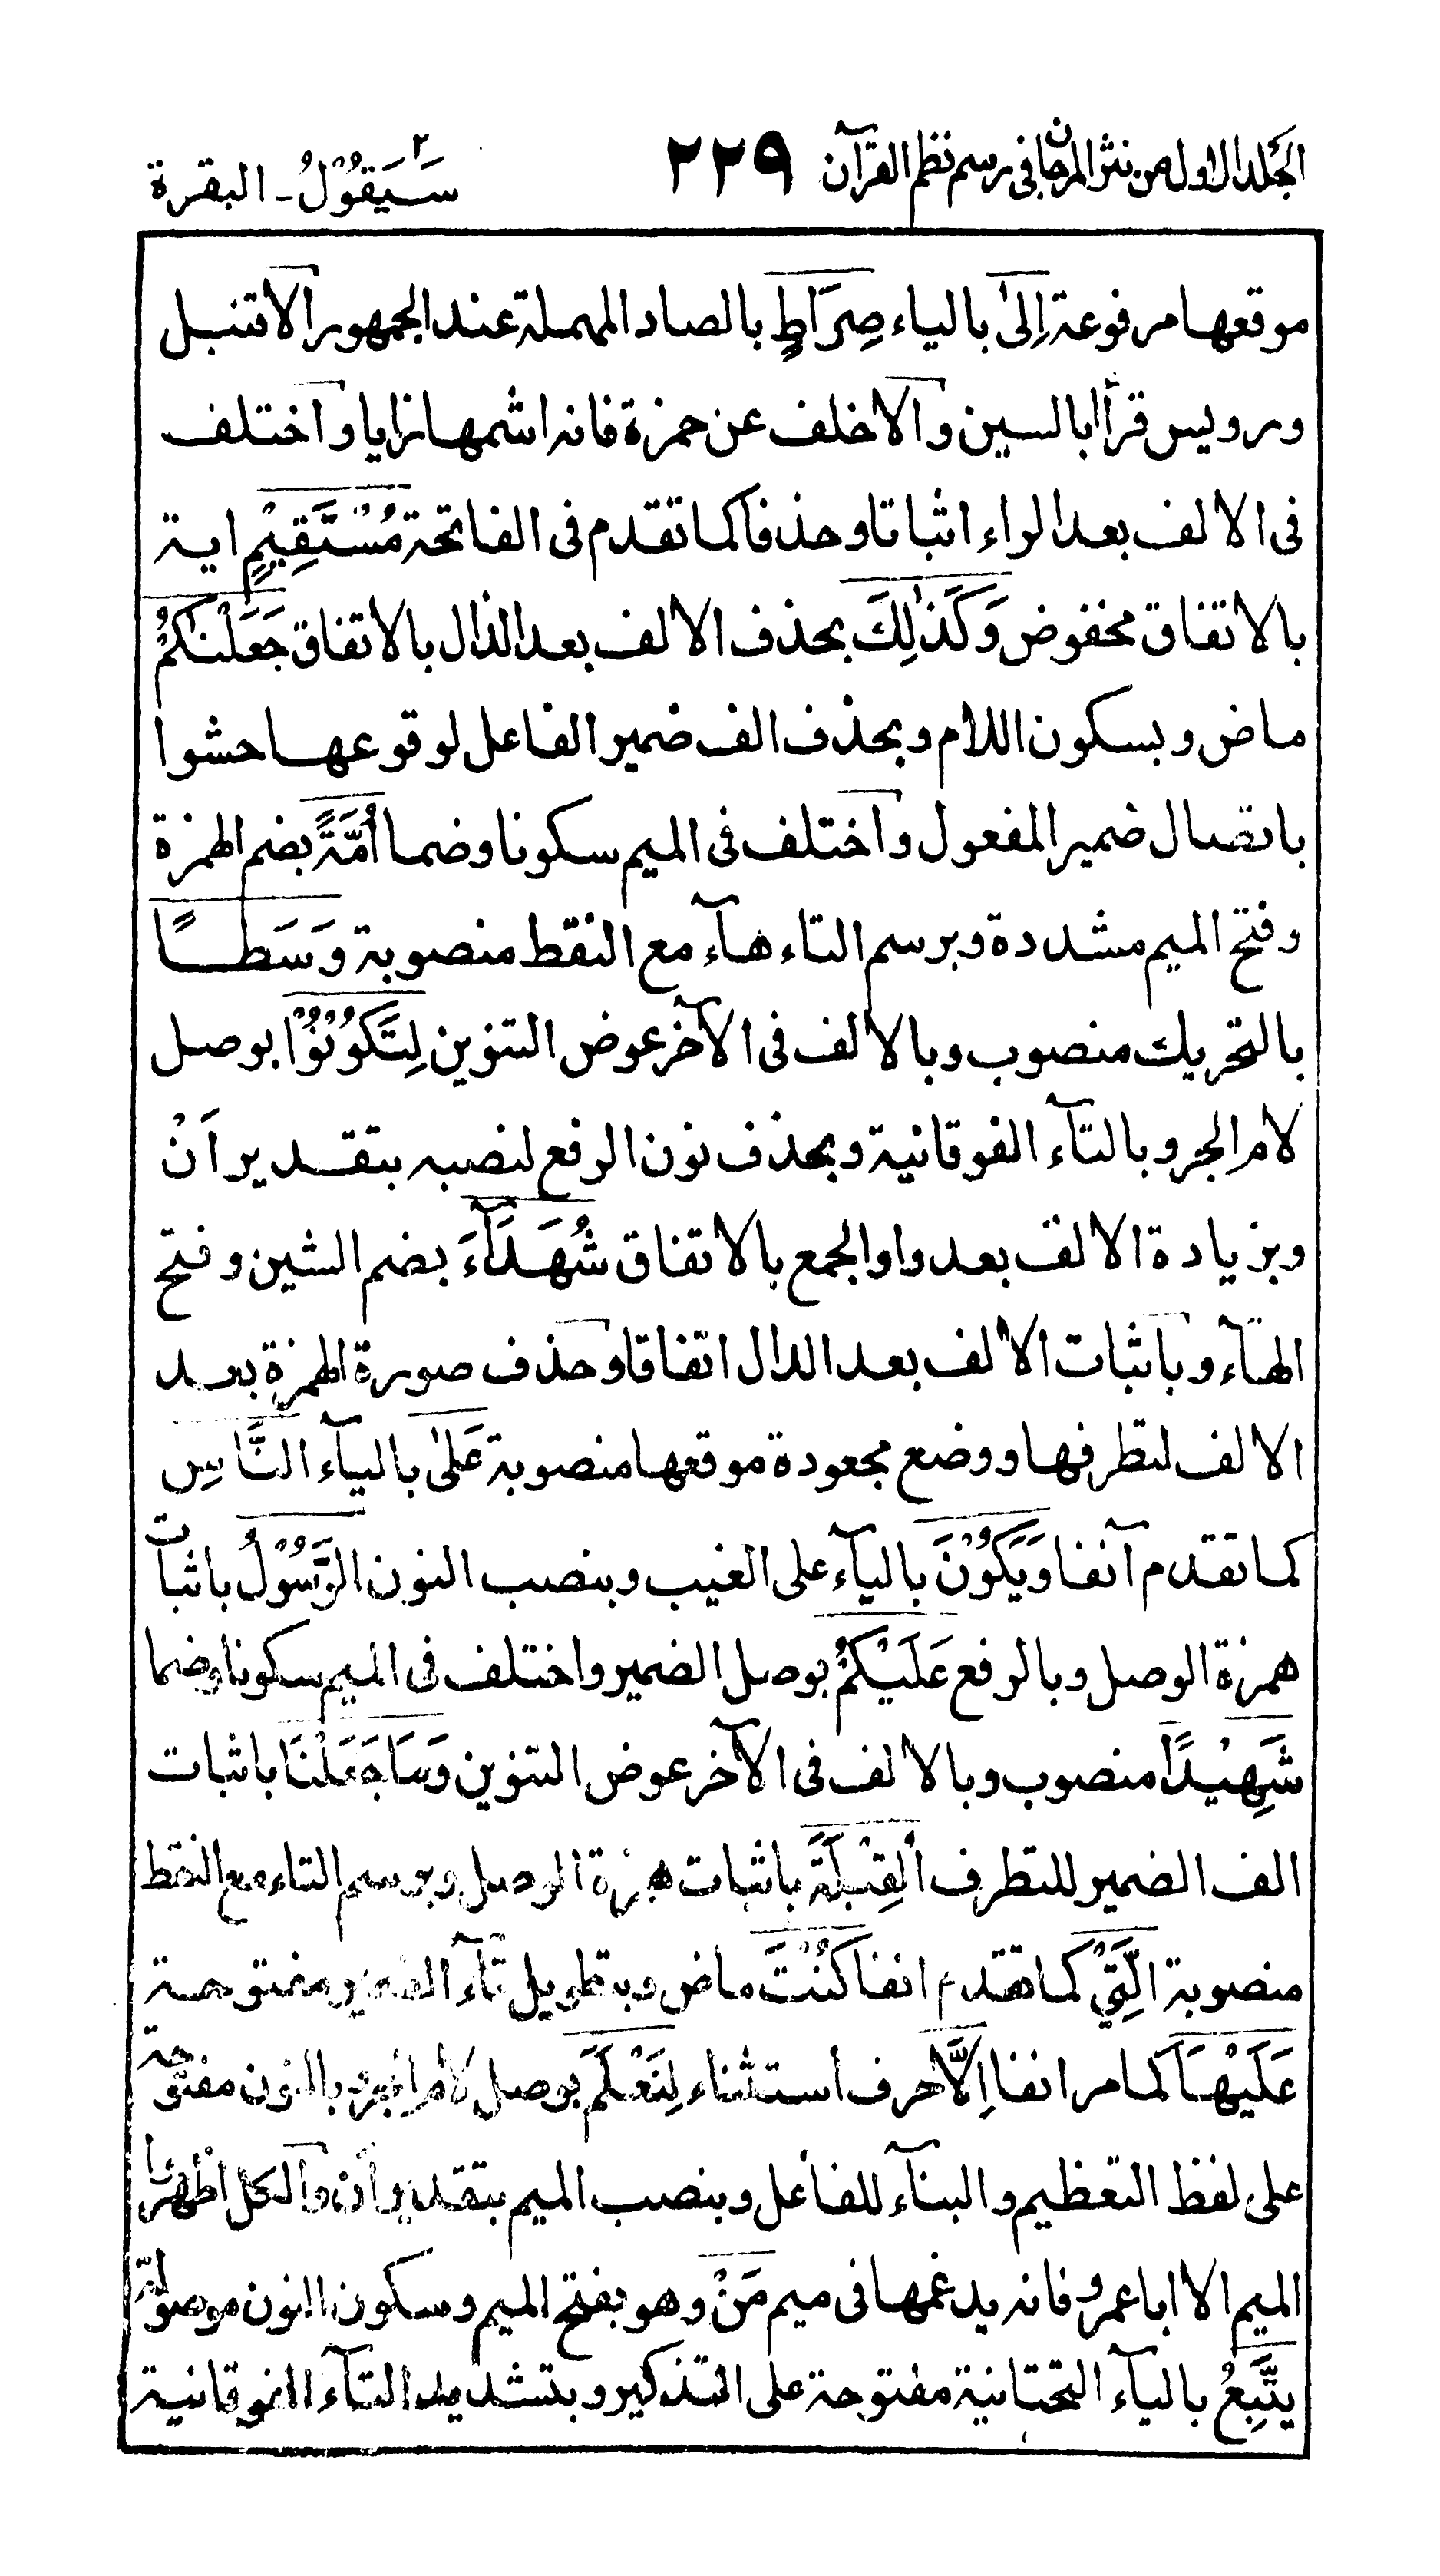 الجلد الاول من نثر المرجان فى رسم نظم القرآن ٢٢٩ سَيَقُوْلُ ـ البقرة ٢
موقعها مرفوعة اِلىٰ بالياء صِرَاطٍ بالصاد المهملة عند الجمهور الا قنبل
ورويس قرأا بالسين والا خلف عن حمزة فانه اشمها زايا واختلف
فى الالف بعد الراء اثباتا وحذفا كما تقدم فى الفاتحة مُسْتَقِيْمٍ اية
بالاتفاق مخفوض وَكَذٰلِكَ بحذف الالف بعد الذال بالاتفاق جَعَلْنٰكُمْ
ماض وبسكون اللام وبحذف الف ضمير الفاعل لوقوعها حشوا
باتصال ضمير المفعول واختلف فى الميم سكونا وضما اُمَّةً بضم الهمزة
وفتح الميم مشددة وبرسم التاء هآء مع النقط منصوبة وَسَطًا
بالتحريك منصوب وبالالف فى الآخر عوض التنوين لِتَكُوْنُوْا بوصل
لام الجر وبالتآء الفوقانية وبحذف نون الرفع لنصبه بتقدير اَنْ
وبزيادة الالف بعد واو الجمع بالاتفاق شُهَدَآءَ بضم الشين وفتح
الهآء وباثبات الالف بعد الدال اتفاقا وحذف صورة الهمزة بعد
الالف لتطرفها ووضع مجعودة موقعها منصوبة عَلىٰ باليآء النَّاسِ
كما تقدم آنفا وَيَكُوْنَ باليآء على الغيب وبنصب النون الرَّسُوْلُ باثبات
همزة الوصل وبالرفع عَلَيْكُمْ بوصل الضمير واختلف فى الميم سكونا وضما
شَهِيْدًا منصوب وبالالف فى الآخر عوض التنوين وَمَا جَعَلْنَا باثبات
الف الضمير للتطرف الْقِبْلَةَ باثبات همزة الوصل وبرسم التاء مع النقط
منصوبة الَّتِيْ كما تقدم انفا كُنْتَ ماض وبتطويل تآء الضمير مفتوحة
عَلَيْهَآ كما مر انفا اِلَّا حرف استثناء لِنَعْلَمَ بوصل لام الجر وبالنون مفتوحة
على لفظ التعظيم والبنآء للفاعل وبنصب الميم بتقدير ان والكل اظهروا
الميم الا ابا عمرو فانه يدغمها فى ميم مَنْ وهو بفتح الميم وسكون النون موصولة
يَتَّبِعُ باليآء التحتانية مفتوحة على التذكير وبتشديد التآء الفوقانية